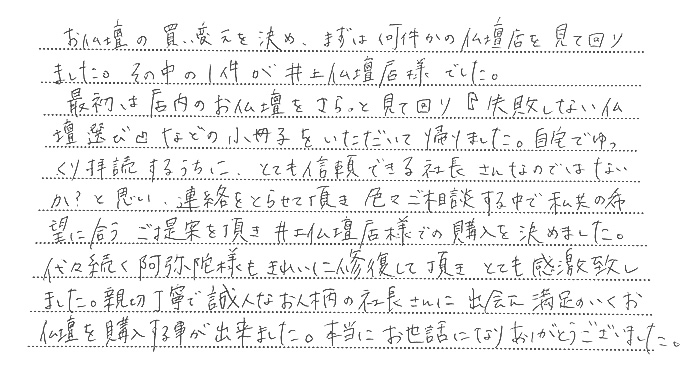 お仏壇の買い変えを決め、まずは何件かの仏壇店を見て回り
ました。その中の1件が井上仏壇店様でした。
最初は店内のお仏壇をさらっと見て回り『失敗しない仏
壇選び』などの小冊子をいただいて帰りました。自宅でゆっ
くり拝読するうちに、とても信頼できる社長さんなのではない
か?と思い、連絡をとらせて頂き色々ご相談する中で私共の希
望に合うご提案を頂き井上仏壇店様での購入を決めました。
代々続く阿弥陀様もきれいに修復して頂きとても感激致し
ました。親切丁寧で誠人なお人柄の社長さんに出会え満足のいくお
仏壇を購入する事が出来ました。本当にお世話になりありがとうございました。